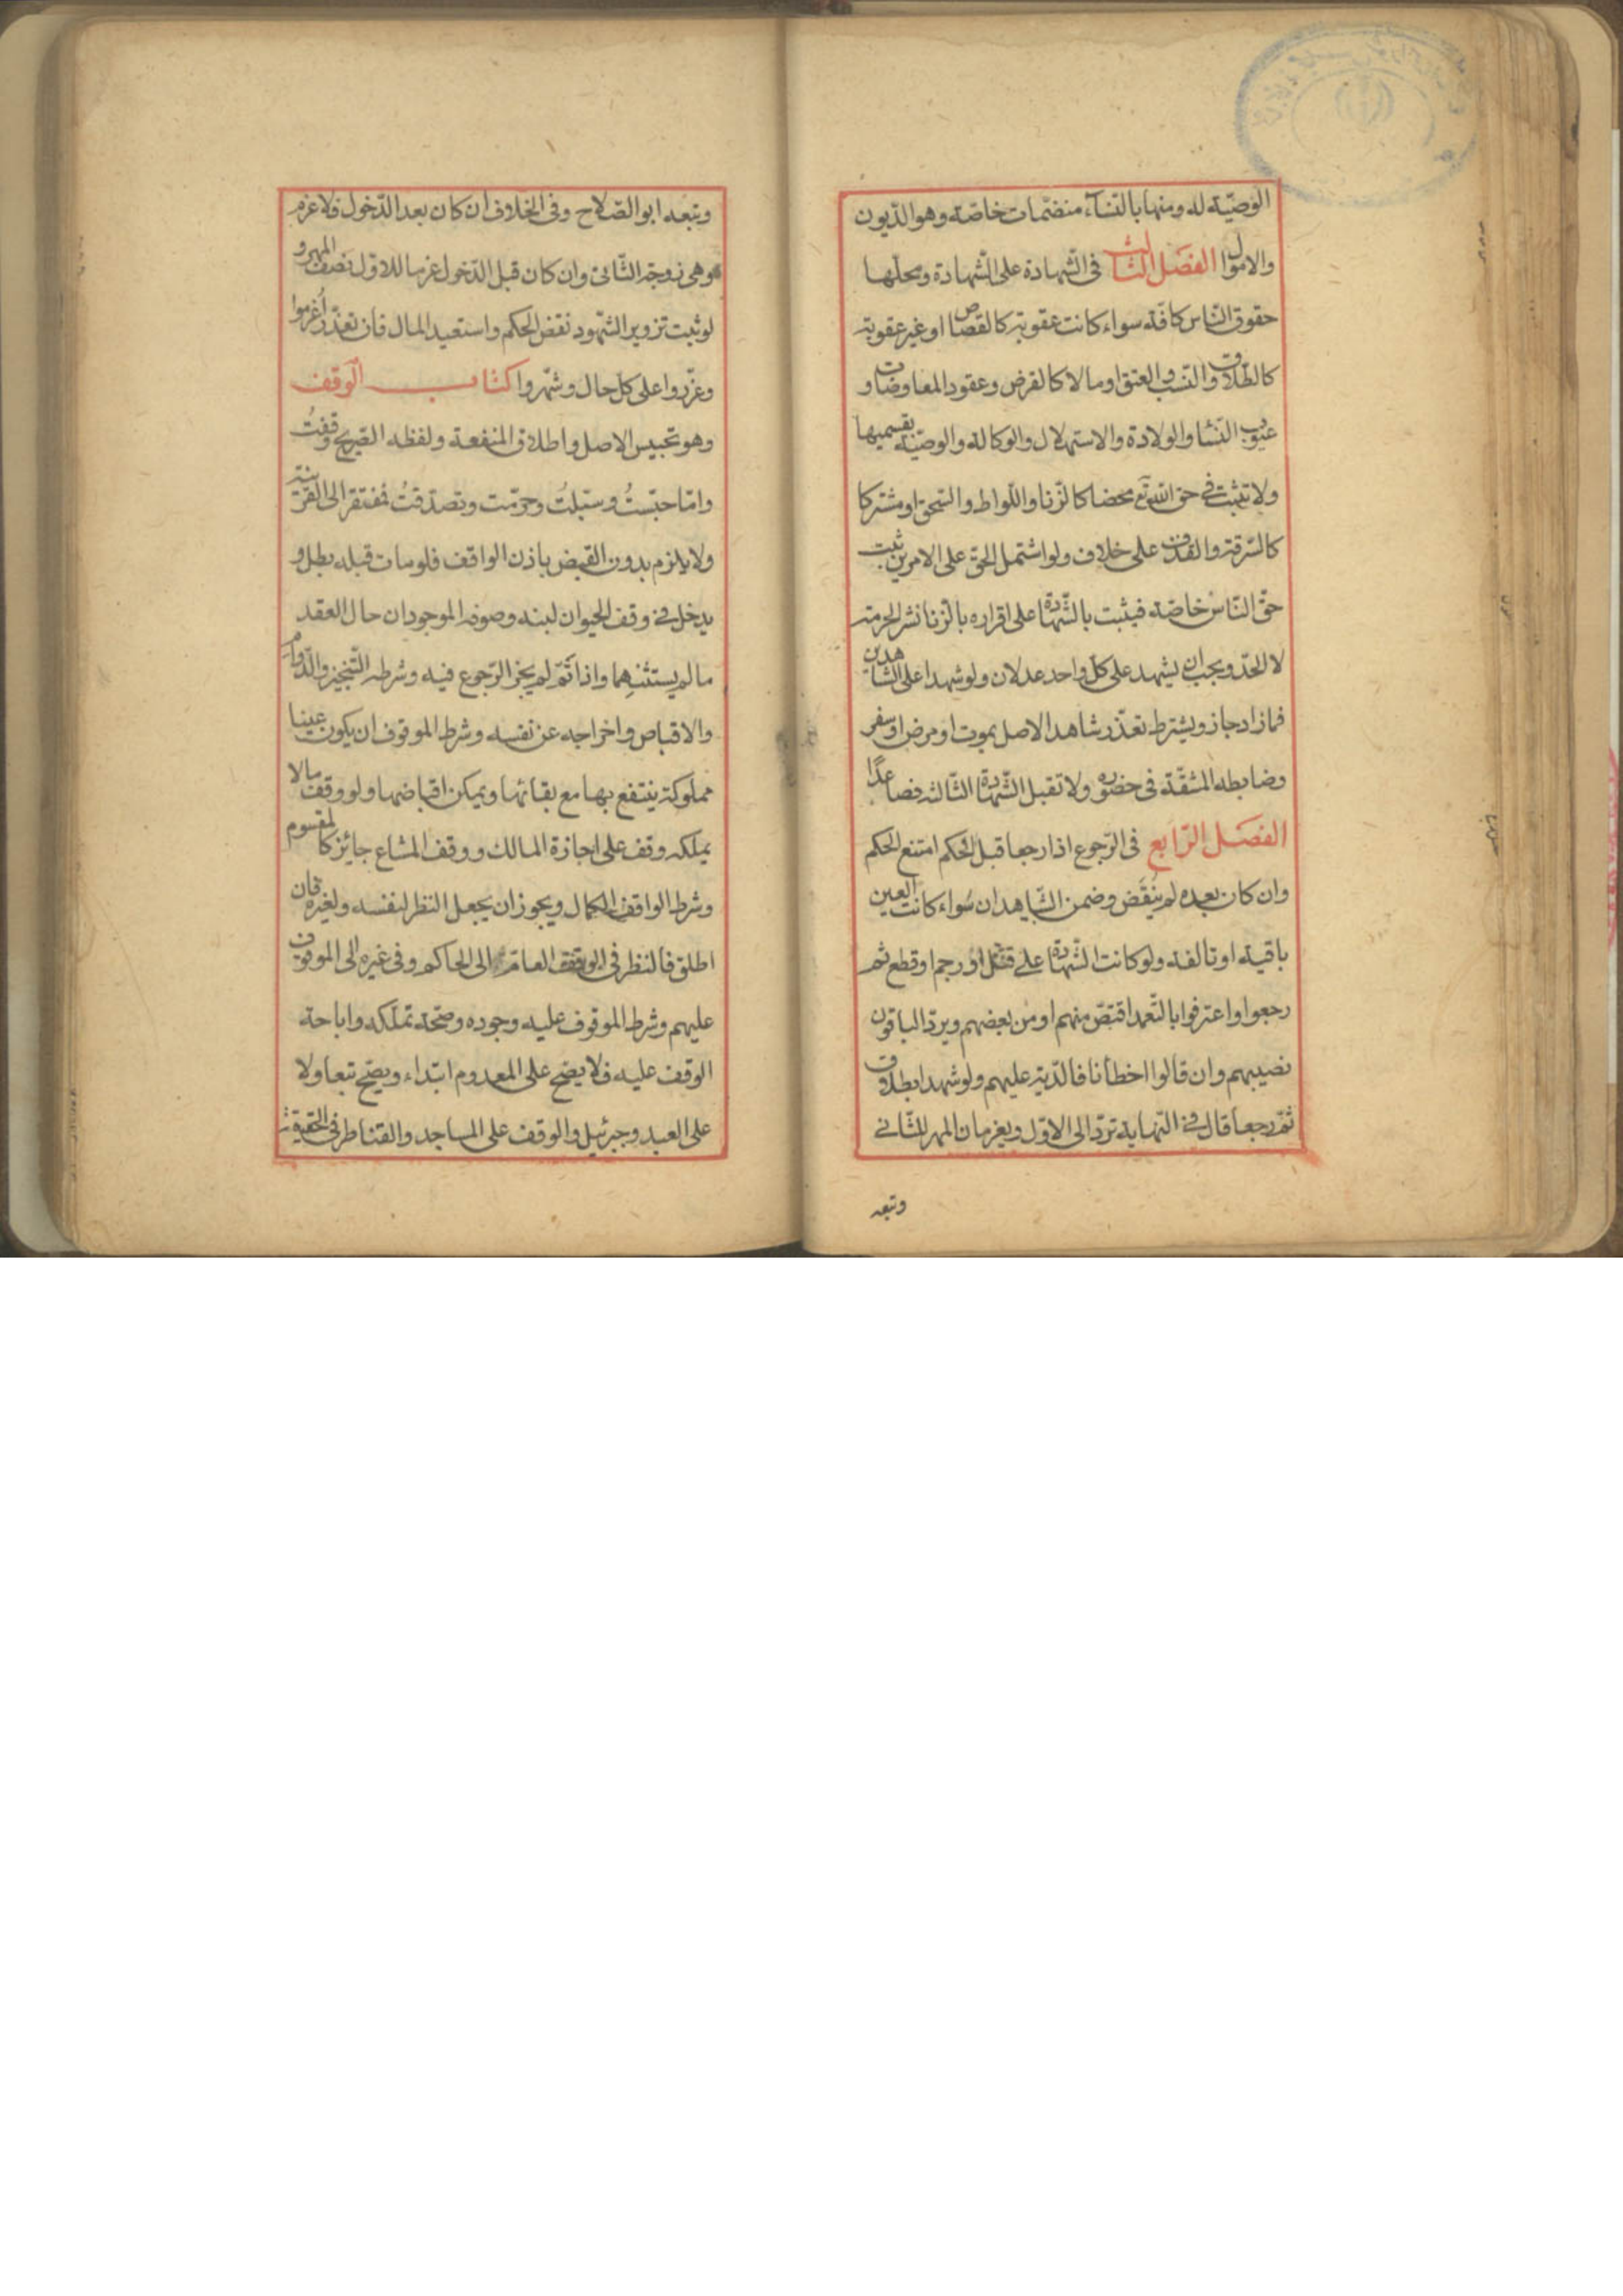 الوصيّة له ومنها بالنساء منضمّات خاصّة وهو الديون
والاموال الفصل الثالث في الشهادة على الشهادة ومحلها
حقوق الناس كافة سواء كانت عقوبة كالقصاص او غير عقوبة
كالطلاق والنسب والعتق او مالا كالقرض وعقود المعاوضات و
عيوب النسا والولادة والاستهلال والوكالة والوصيّة بقسميها
ولا تثبت في حق الله تع محضا كالزنا واللواط والسحق او مشتركا
كالسرقة والقذف على خلاف ولو اشتمل الحق على الامرين ثبت
حق الناس خاصة فيثبت بالشهادة على اقراره بالزنا نشر الحرمة
لا الحدّ ويجب ان يشهد على كلّ واحد عدلان ولو شهدا على الشاهدين
فمازاد جاز ويشترط تعذّر شاهد الاصل بموت او مرض او سفر
وضابطه المشقّة في حضوره ولا تقبل الشهادة الثالثة فصاعدًا
الفصل الرّابع في الرّجوع اذا رجعا قبل الحكم امتنع الحكم
وان كان بعده لم يُنقَض وضمن الشاهدان سواء كانت العين
باقية او تالفة ولو كانت الشهادة على قتل او رجم او قطع ثم
رجعوا واعترفوا بالتّعمد اقتصّ منهم او من بعضهم ويردّ الباقون
نصيبهم وان قالوا اخطأنا فالدّية عليهم ولو شهدا بطلاق
ثمّ رجعا قال في النّهاية تردّ الى الاوّل ويغرمان المهر للثّاني
وتبعه
وتبعه ابو الصّلاح وفي الخلاف ان كان بعد الدّخول فلا غرم
وهي زوجة الثّاني وان كان قبل الدّخول غرما للاوّل نصف المهر و
لو ثبت تزوير الشّهود نقض الحكم واستعيد المال فان تعذّر اُغرموا
وعزّروا على كل حال وشهّروا كتاب الوقف
وهو تحبيس الاصل واطلاق المنفعة ولفظه الصّريح وقفتُ
وامّا حبّستُ وسبّلتُ وحرّمت وتصدّقتُ فمفتقر الى القرينة
ولا يلزم بدون القبض باذن الواقف فلو مات قبله بطل و
يدخل في وقف الحيوان لبنه وصوفه الموجودان حال العقد
ما لم يستثنهما واذا تَمّ لم يجز الرّجوع فيه وشرطه التّنجيز والدّوام
والاقباض واخراجه عن نفسه وشرط الموقوف ان يكون عينا
مملوكة ينتفع بها مع بقائها ويمكن اقباضها ولو وقف مالا
يملكه وقف على اجازة المالك ووقف المشاع جائز كالمقسوم
وشرط الواقف الكمال ويجوز ان يجعل النظر لنفسه ولغيره فان
اطلق فالنظر في الوقف العامّ الى الحاكم وفي غيره الى الموقوف
عليهم وشرط الموقوف عليه وجوده وصحّة تملّكه واباحة
الوقف عليه فلا يصحّ على المعدوم ابتداء ويصحّ تبعا ولا
على العبد وجبرئيل والوقف على المساجد والقناطر في الحقيقة